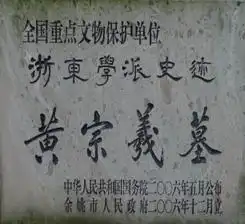 全国重点文物保护单位
浙東學派史迹
黄宗羲墓
中华人民共和国国务院二〇〇六年五月公布
余姚市人民政府二〇〇六年十二月立